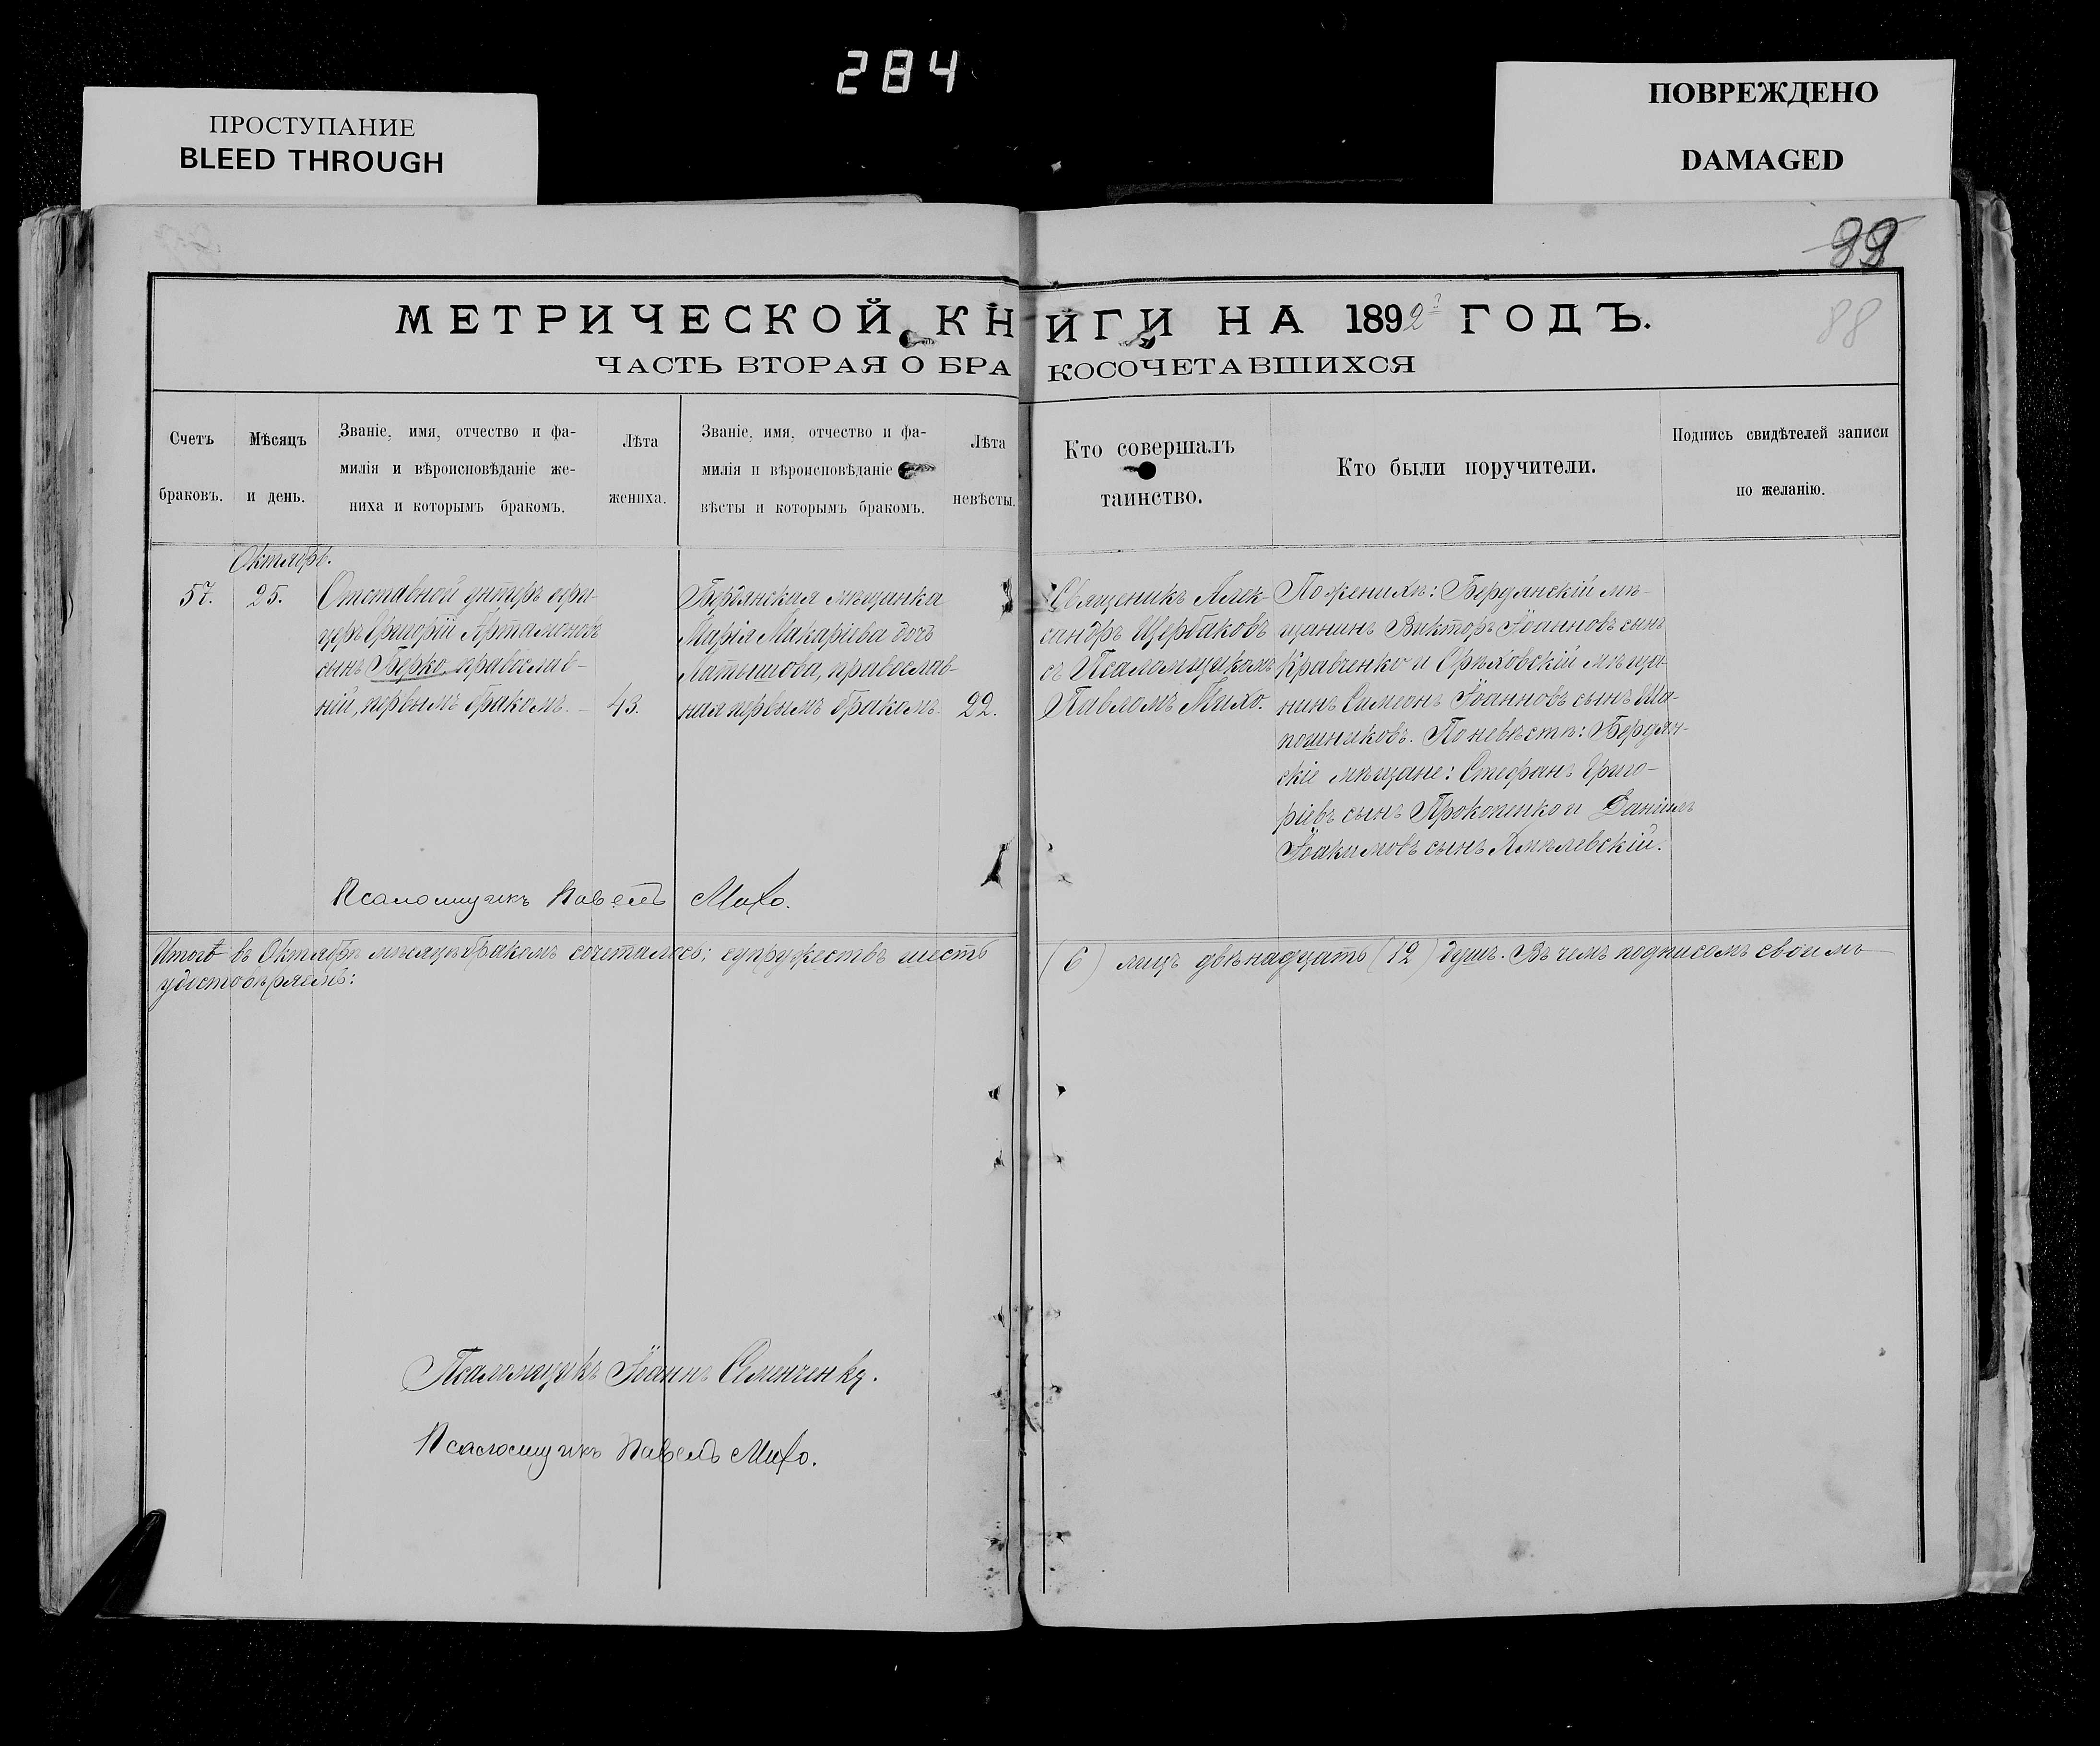 284
ПРОСТУПАНИЕ
BLEED THROUGH
ПОВРЕЖДЕНО
DAMAGED
99
88
МЕТРИЧЕСКОЙ КНИГИ НА 1892 ГОДЪ.
ЧАСТЬ ВТОРАЯ О БРАКОСОЧЕТАВШИХСЯ
Счетъ
браковъ.
Мѣсяцъ
и день.
Званіе, имя, отчество и фа-
милія и вѣроисповѣданіе же-
ниха и которымъ бракомъ.
Лѣта
жениха.
Званіе, имя, отчество и фа-
милія и вѣроисповѣданіе
вѣсты и которымъ бракомъ.
Лѣта
невѣсты.
Кто совершалъ
таинство.
Кто были поручители.
Подпись свидѣтелей записи
по желанію.
Октябрь.
57.
25.
Отставной унтеръ офи-
церъ Григорій Артамоновъ
сынъ Берко, православ-
ній, первымъ бракомъ.
43.
Бердянская мѣщанка
Марія Макаріева дочь
Латышова, православ-
ная первымъ бракомъ.
22.
Священикъ Алек-
сандръ Щербаковъ
съ Псаломщикомъ
Павломъ Михо.
По женихѣ: Бердянскій мѣ-
щанинъ Викторъ Іоанновъ сынъ
Кравченко и Орѣховскій мѣща-
нинъ Симеонъ Іоанновъ сынъ Ша-
пошниковъ. По невѣстѣ: Бердян-
скіе мѣщане: Стефанъ Григо-
ріевъ сынъ Прокопенко и Даніилъ
Іоакимовъ сынъ Хмѣлевскій.
Псаломщикъ Павелъ Михо.
Итого въ Октябрѣ мѣсяцѣ бракомъ сочеталось: супружествъ шесть (6) лицъ двѣнадцать (12) душъ. Въ чемъ подписомъ своимъ
удостовѣряемъ:
Псаломщикъ Іоаннъ Семенченко.
Псаломщикъ Павелъ Михо.